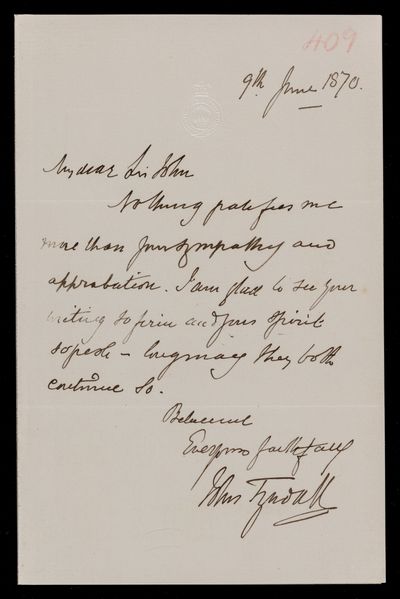 409
9th June 1870.
My dear Sir John
Nothing gratifies me
more than your sympathy and
approbation. I am glad to see your
writing so firm and your spirit
so fresh – long may they both
continue so.
Believe me
Ever yours faithfully
John Tyndall